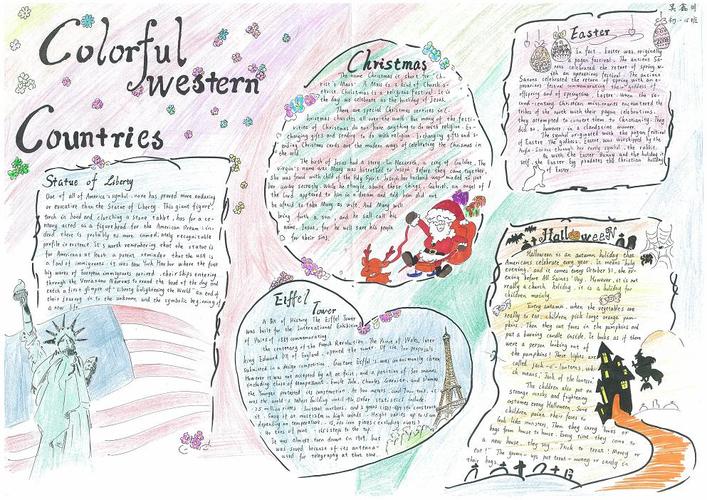 Colorful
western
Countries
吴鑫
Statue of Liberty
One of all of America's symbol, none has proved more enduring
or evocative than the Statue of Liberty. This giant figure,
torch in hand and clutching a stone tablet, has for a
century acted as a figurehead for the American Dream; in
deed there is probably no more immediately recognizable
profile in existence. It's worth remembering that the statue is
for Americans at least a potent reminder that the USA is
a land of immigrants: it was New York Harbor where the first
big waves of European immigrants arrived, their ships entering
through the Verrazano Narrows to round the bend of the bay and
catch a first glimpse of "Liberty Enlightening the World" an end of
their journey in to the unknown, and the symbolic beginning of
a new life.
Christmas
The name Christmas is short for "Ch-
rist's Mass". A Mass is a kind of Church
service. Christmas is a religious festival. It is
the day we celebrate as the birthday of Jesus.
There are special Christmas services in
Christmas churches all over the world. But many of the festi-
vities of Christmas do not have anything to do with religion. Ex-
changing gifts and sending
Christmas cards are the modern ways of celebrating the Christmas in
the world.
The birth of Jesus had a story: in Nazareth, a city of Galilee. The
virgin's name was Mary was betrothed to Joseph. Before they came together,
She was found with child of the Holy Spirit. Joseph her husband was minded to put
her away secretly. While he thought about these things, Gabriel, an angel of
the Lord appeared to him in a dream and told him did not
be afraid to take Mary as wife. And Mary will
bring forth a son, and he shall call his
name Jesus, for he will save his people
from their sins.
Eiffel
Tower
A Bit of History The Eiffel Tower
was built for the International Exhibition
of Paris of 1889 commemorating
the centenary of the French Revolution. The Prince of Wales, later
King Edward VII of England, opened the tower. Of the
submitted in a design competition, Gustave Eiffel's was unanimously chosen.
However it was not accepted by all at first, and a petition of 300 names,
including those of Maupassant, Emile Zola, Charles Garnier, and Dumas
the Younger protested its construction.
It was almost torn down in 1909, but
was saved because of its antenna
used for telegraphy at that time.
Easter
In fact, Easter was originally
a pagan festival. The ancient Sa-
xons celebrated the return of spring w-
ith an uproarious festival
commemorating their goddess of
offspring and of springtime, Easter. When the se-
cond-century Christian missionaries encountered the
tribes of the north with their pagan celebrations,
they attempted to convert them to Christianity. They
did so, however, in a clandestine manner.
The symbol originated with the pagan festival
of Easter. The goddess, Easter, was worshipped by the
Anglo-Saxons through her earthly symbol, the rabbit.
As with the Easter Bunny and the holiday it-
self, the Easter Egg predates the Christian holiday
of Easter.
Halloween
Halloween is an autumn holiday that
Americans celebrate every year. It means "holy
evening," and it comes every October 31, the ev-
ening before All Saints' Day. However, it is not
really a church holiday, it is a holiday for
children mainly.
Every autumn, when the vegetables are
ready to eat, children pick large orange pum-
pkins. Then they cut faces in the pumpkins and
put a burning candle inside. It looks as if there
were a person looking out of
the pumpkins! These lights are
called jack-o'-lanterns, whi-
ch means "Jack of the lantern".
The children also put on
strange masks and frightening
costumes every Halloween. Some
children paint their faces to
look like monsters. Then they carry boxes or
bags from house to house. Every time they come to
a new house, they say, "Trick or treat! Money or
eat!" The grown-ups put treat-money or candy in
their bags.